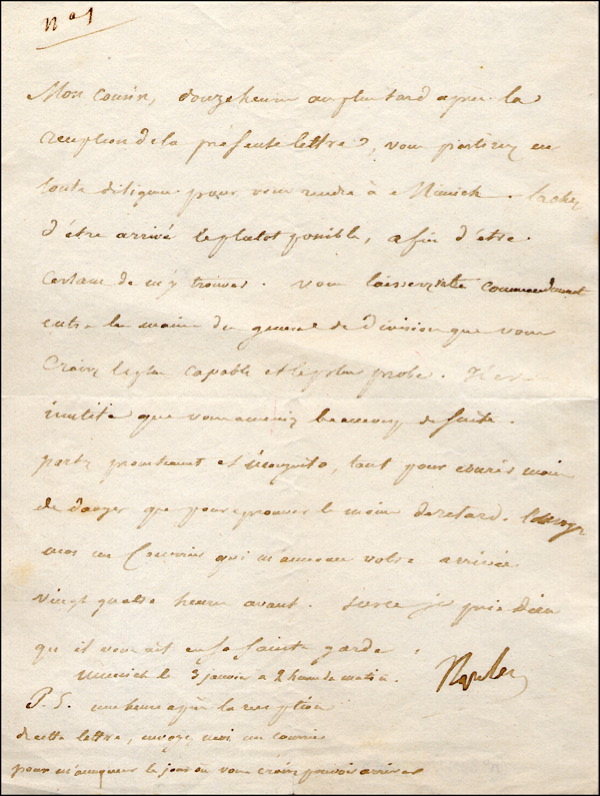 nº 1
Mon Cousin, douze heures au plus tard après la
réception de la présente lettre, vous partirez en
toute diligence pour vous rendre à Munich. tachez
d'être arrivé le plutot possible, afin d'être
certain de m'y trouver. vous laisserez votre commandement
entre les mains du général de division que vous
croirez le plus capable et le plus probe. Il est
inutile que vous ameniez beaucoup de suite.
partez promtement et incognito, tant pour courir moins
de danger que pour eprouver le moins de retard. Envoyez
moi un Courrier qui m'annonce votre arrivée
vingt quatre heures avant. Sur ce je prie Dieu
qu'il vous ait en sa sainte garde.
Munich le 3 janvier à 2 heures du matin.
P. S. une heure après la reception
de cette lettre, envoyez moi un courrier
pour m'annoncer le jour où vous croirez pouvoir arriver